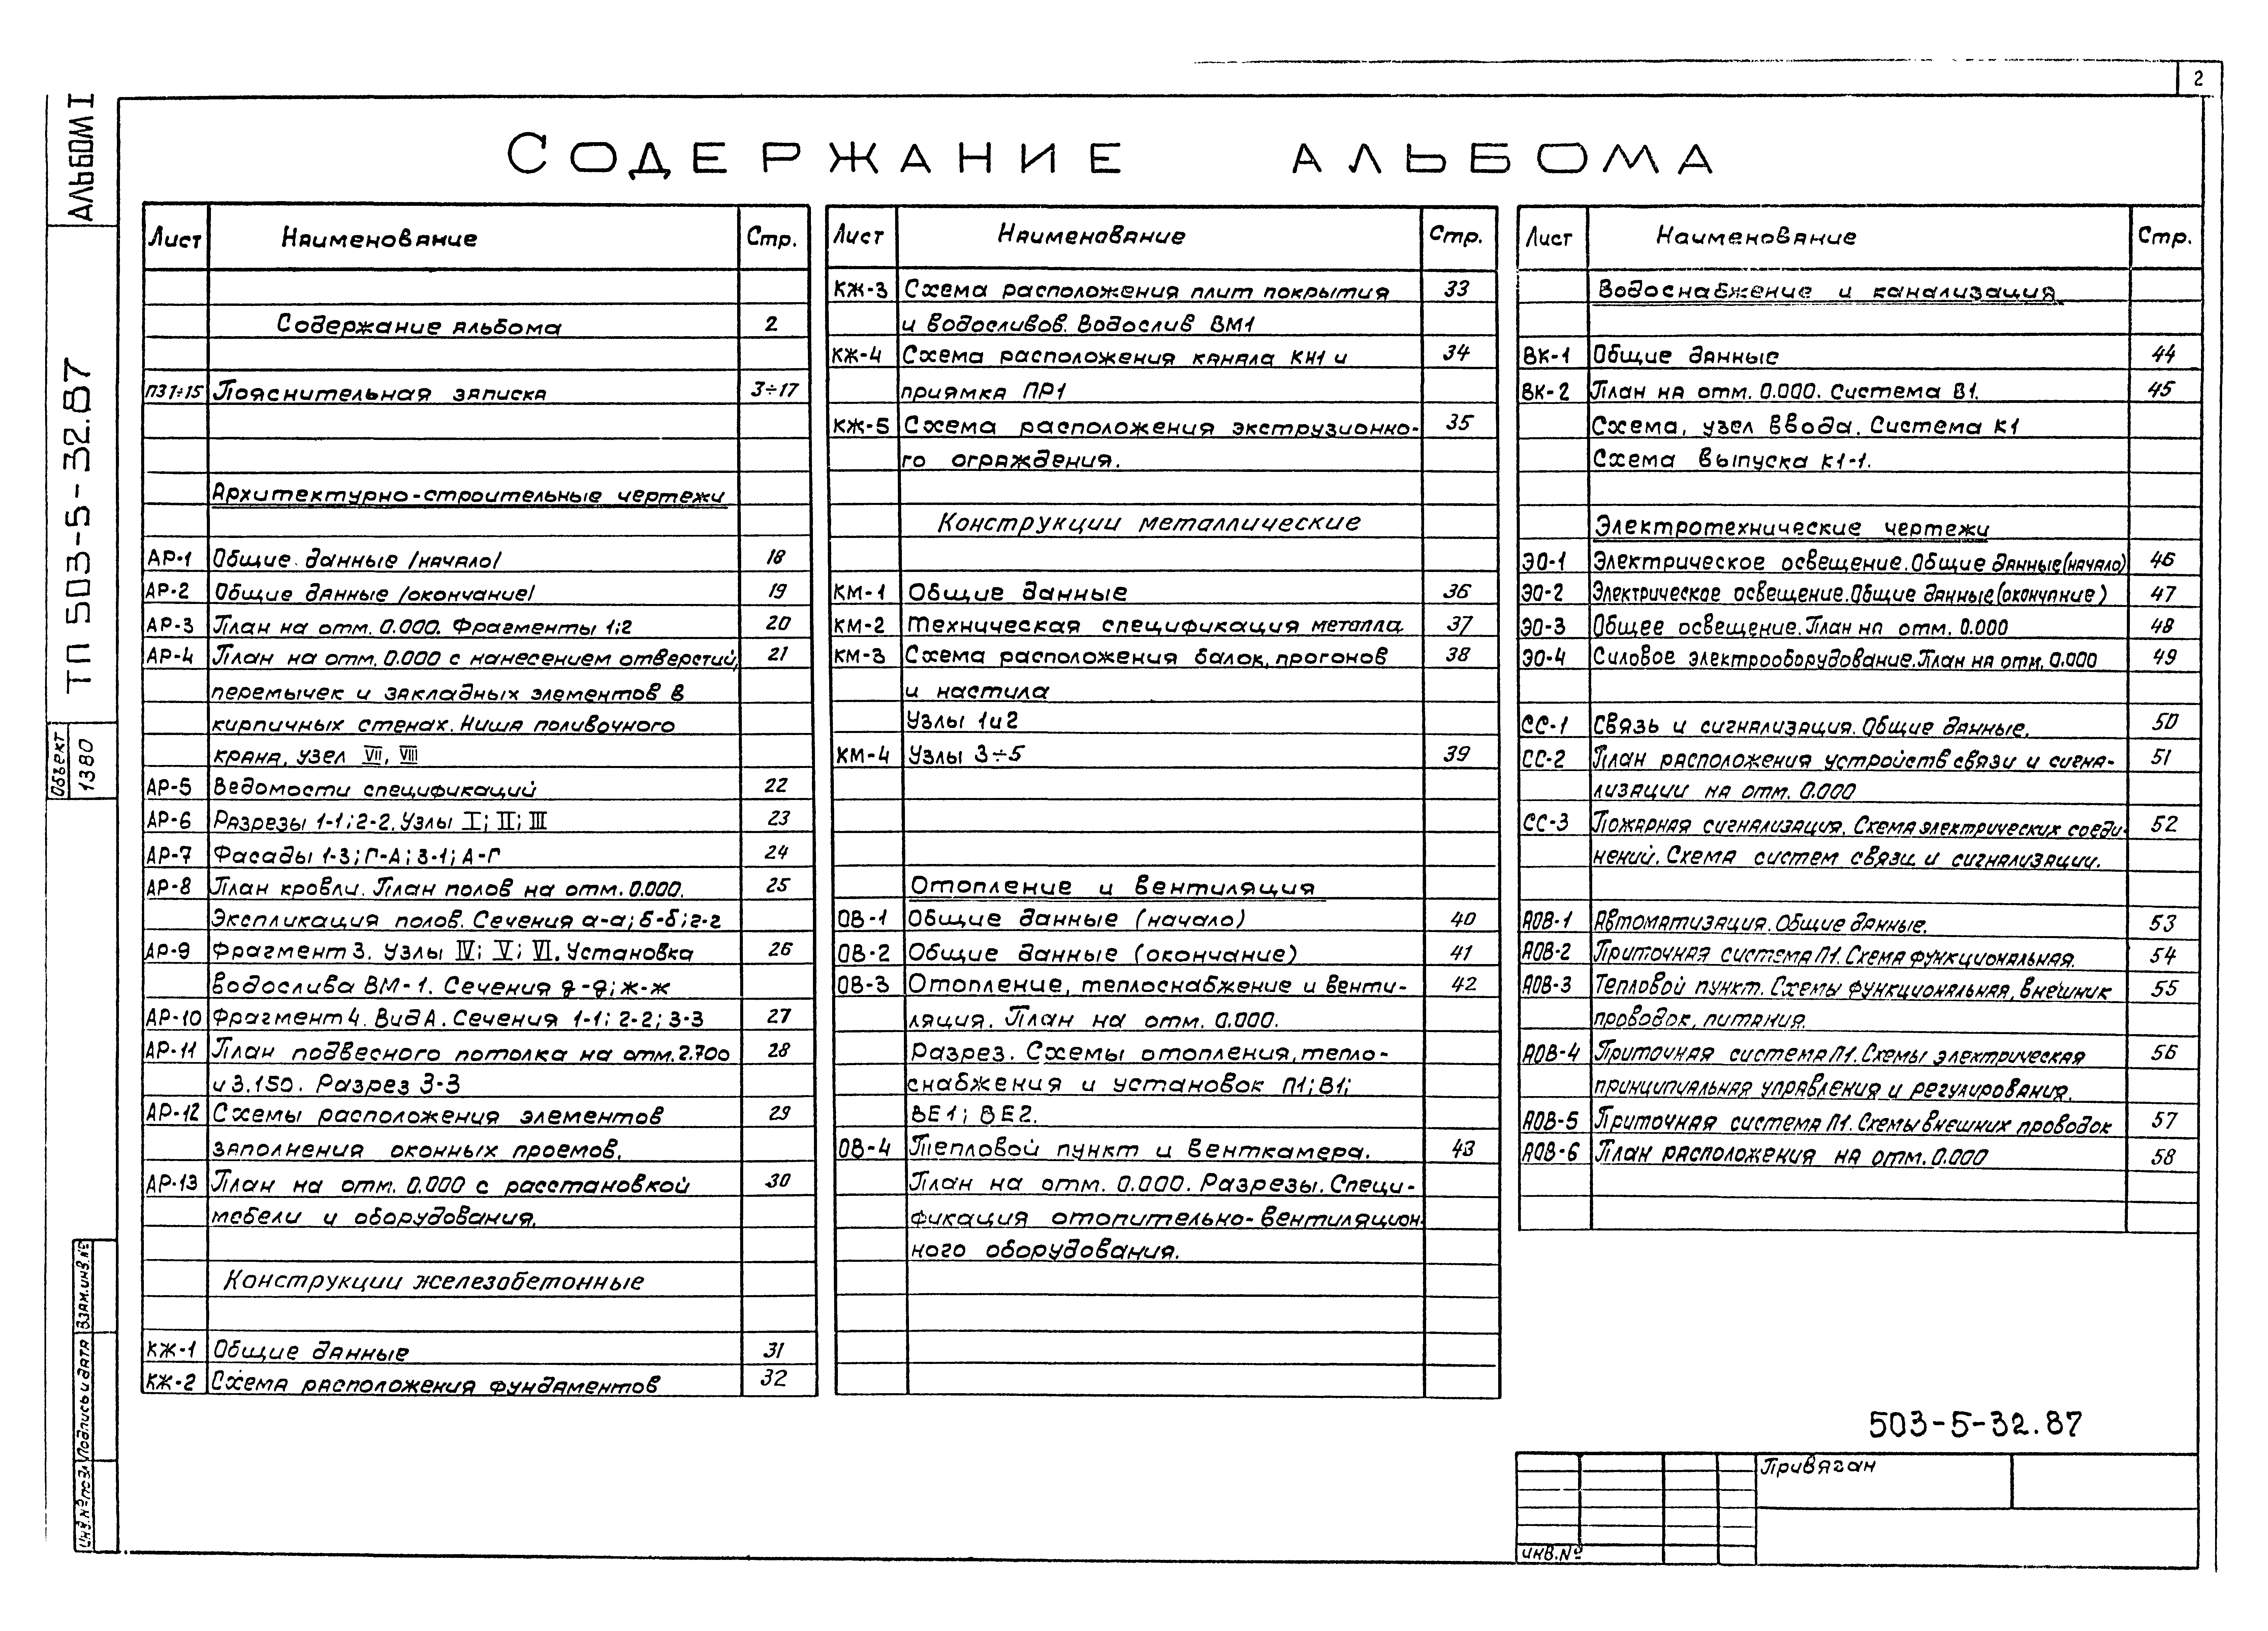 2
АЛЬБОМ I
ТП 503-5-32.87
Объект
1380
Взам.инв.№
Подпись и дата
Инв.№ подл
СОДЕРЖАНИЕ АЛЬБОМА
Лист Наименование Стр.
Содержание альбома 2
ПЗ1÷15 Пояснительная записка 3÷17
Архитектурно-строительные чертежи
АР-1 Общие данные /начало/ 18
АР-2 Общие данные /окончание/ 19
АР-3 План на отм. 0.000. Фрагменты 1;2 20
АР-4 План на отм. 0.000 с нанесением отверстий, 21
перемычек и закладных элементов в
кирпичных стенах. Ниша поливочного
крана, узел VII, VIII
АР-5 Ведомости спецификаций 22
АР-6 Разрезы 1-1; 2-2. Узлы I; II; III 23
АР-7 Фасады 1-3; Г-А; 3-1; А-Г 24
АР-8 План кровли. План полов на отм. 0.000. 25
Экспликация полов. Сечения а-а; б-б; г-г
АР-9 Фрагмент 3. Узлы IV; V; VI. Установка 26
водослива ВМ-1. Сечения д-д; ж-ж
АР-10 Фрагмент 4. Вид А. Сечения 1-1; 2-2; 3-3 27
АР-11 План подвесного потолка на отм. 2.700 28
и 3.150. Разрез 3-3
АР-12 Схемы расположения элементов 29
заполнения оконных проемов.
АР-13 План на отм. 0.000 с расстановкой 30
мебели и оборудования.
Конструкции железобетонные
КЖ-1 Общие данные 31
КЖ-2 Схема расположения фундаментов 32
Лист Наименование Стр.
КЖ-3 Схема расположения плит покрытия 33
и водосливов. Водослив ВМ1
КЖ-4 Схема расположения канала КН1 и 34
приямка ПР1
КЖ-5 Схема расположения экструзионно- 35
го ограждения.
Конструкции металлические
КМ-1 Общие данные 36
КМ-2 Техническая спецификация металла 37
КМ-3 Схема расположения балок, прогонов 38
и настила
Узлы 1и2
КМ-4 Узлы 3÷5 39
Отопление и вентиляция
ОВ-1 Общие данные (начало) 40
ОВ-2 Общие данные (окончание) 41
ОВ-3 Отопление, теплоснабжение и венти- 42
ляция. План на отм. 0.000.
Разрез. Схемы отопления, тепло-
снабжения и установок П1; В1;
ВЕ1; ВЕ2.
ОВ-4 Тепловой пункт и венткамера. 43
План на отм. 0.000. Разрезы. Специ-
фикация отопительно-вентиляцион-
ного оборудования.
Лист Наименование Стр.
Водоснабжение и канализация
ВК-1 Общие данные 44
ВК-2 План на отм. 0.000. Система В1. 45
Схема, узел ввода. Система К1
Схема выпуска К1-1.
Электротехнические чертежи
ЭО-1 Электрическое освещение. Общие данные (начало) 46
ЭО-2 Электрическое освещение. Общие данные (окончание) 47
ЭО-3 Общее освещение. План на отм. 0.000 48
ЭО-4 Силовое электрооборудование. План на отм. 0.000 49
СС-1 Связь и сигнализация. Общие данные. 50
СС-2 План расположения устройств связи и сигна- 51
лизации на отм. 0.000
СС-3 Пожарная сигнализация. Схема электрических соеди- 52
нений. Схема систем связи и сигнализации.
АОВ-1 Автоматизация. Общие данные. 53
АОВ-2 Приточная система П1. Схема функциональная. 54
АОВ-3 Тепловой пункт. Схемы функциональная, внешних 55
проводок, питания.
АОВ-4 Приточная система П1. Схемы электрическая 56
принципиальная управления и регулирования.
АОВ-5 Приточная система П1. Схемы внешних проводок 57
АОВ-6 План расположения на отм. 0.000 58
503-5-32.87
Привязан
инв.№